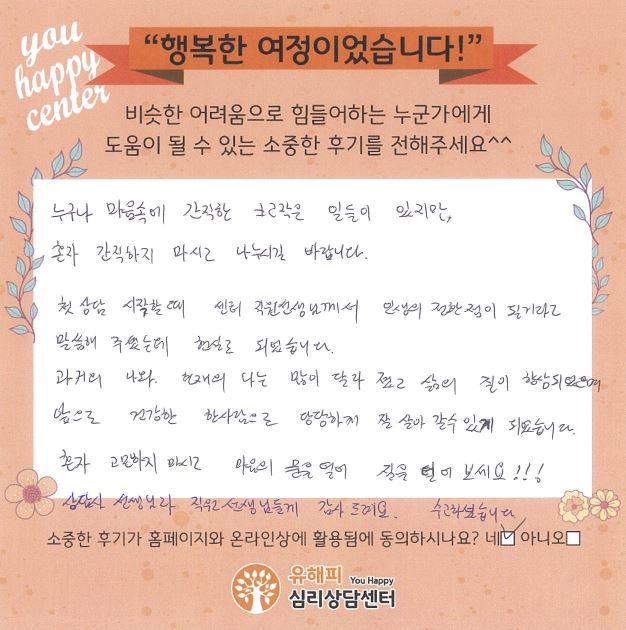 you
happy
center
“행복한 여정이었습니다!”
비슷한 어려움으로 힘들어하는 누군가에게
도움이 될 수 있는 소중한 후기를 전해주세요^^
누구나 마음속에 간직한 크고작은 일들이 있지만,
혼자 간직하지 마시고 나누시길 바랍니다.
첫 상담 시작할때 센터 직원선생님께서 인생의 전환점이 될거라고
말씀해 주셨는데 현실로 되었습니다.
과거의 나와. 현재의 나는 많이 달라 졌고 삶의 질이 향상되었으며
앞으로 건강한 한사람으로 당당하게 잘 살아 갈수있게 되었습니다.
혼자 고민하지 마시고 마음의 문을 열어 보세요!!!
상담사 선생님과 직원선생님들께 감사드려요. 수고하셨습니다
소중한 후기가 홈페이지와 온라인상에 활용됨에 동의하시나요? 네☑ 아니오☐
유해피 You Happy
심리상담센터